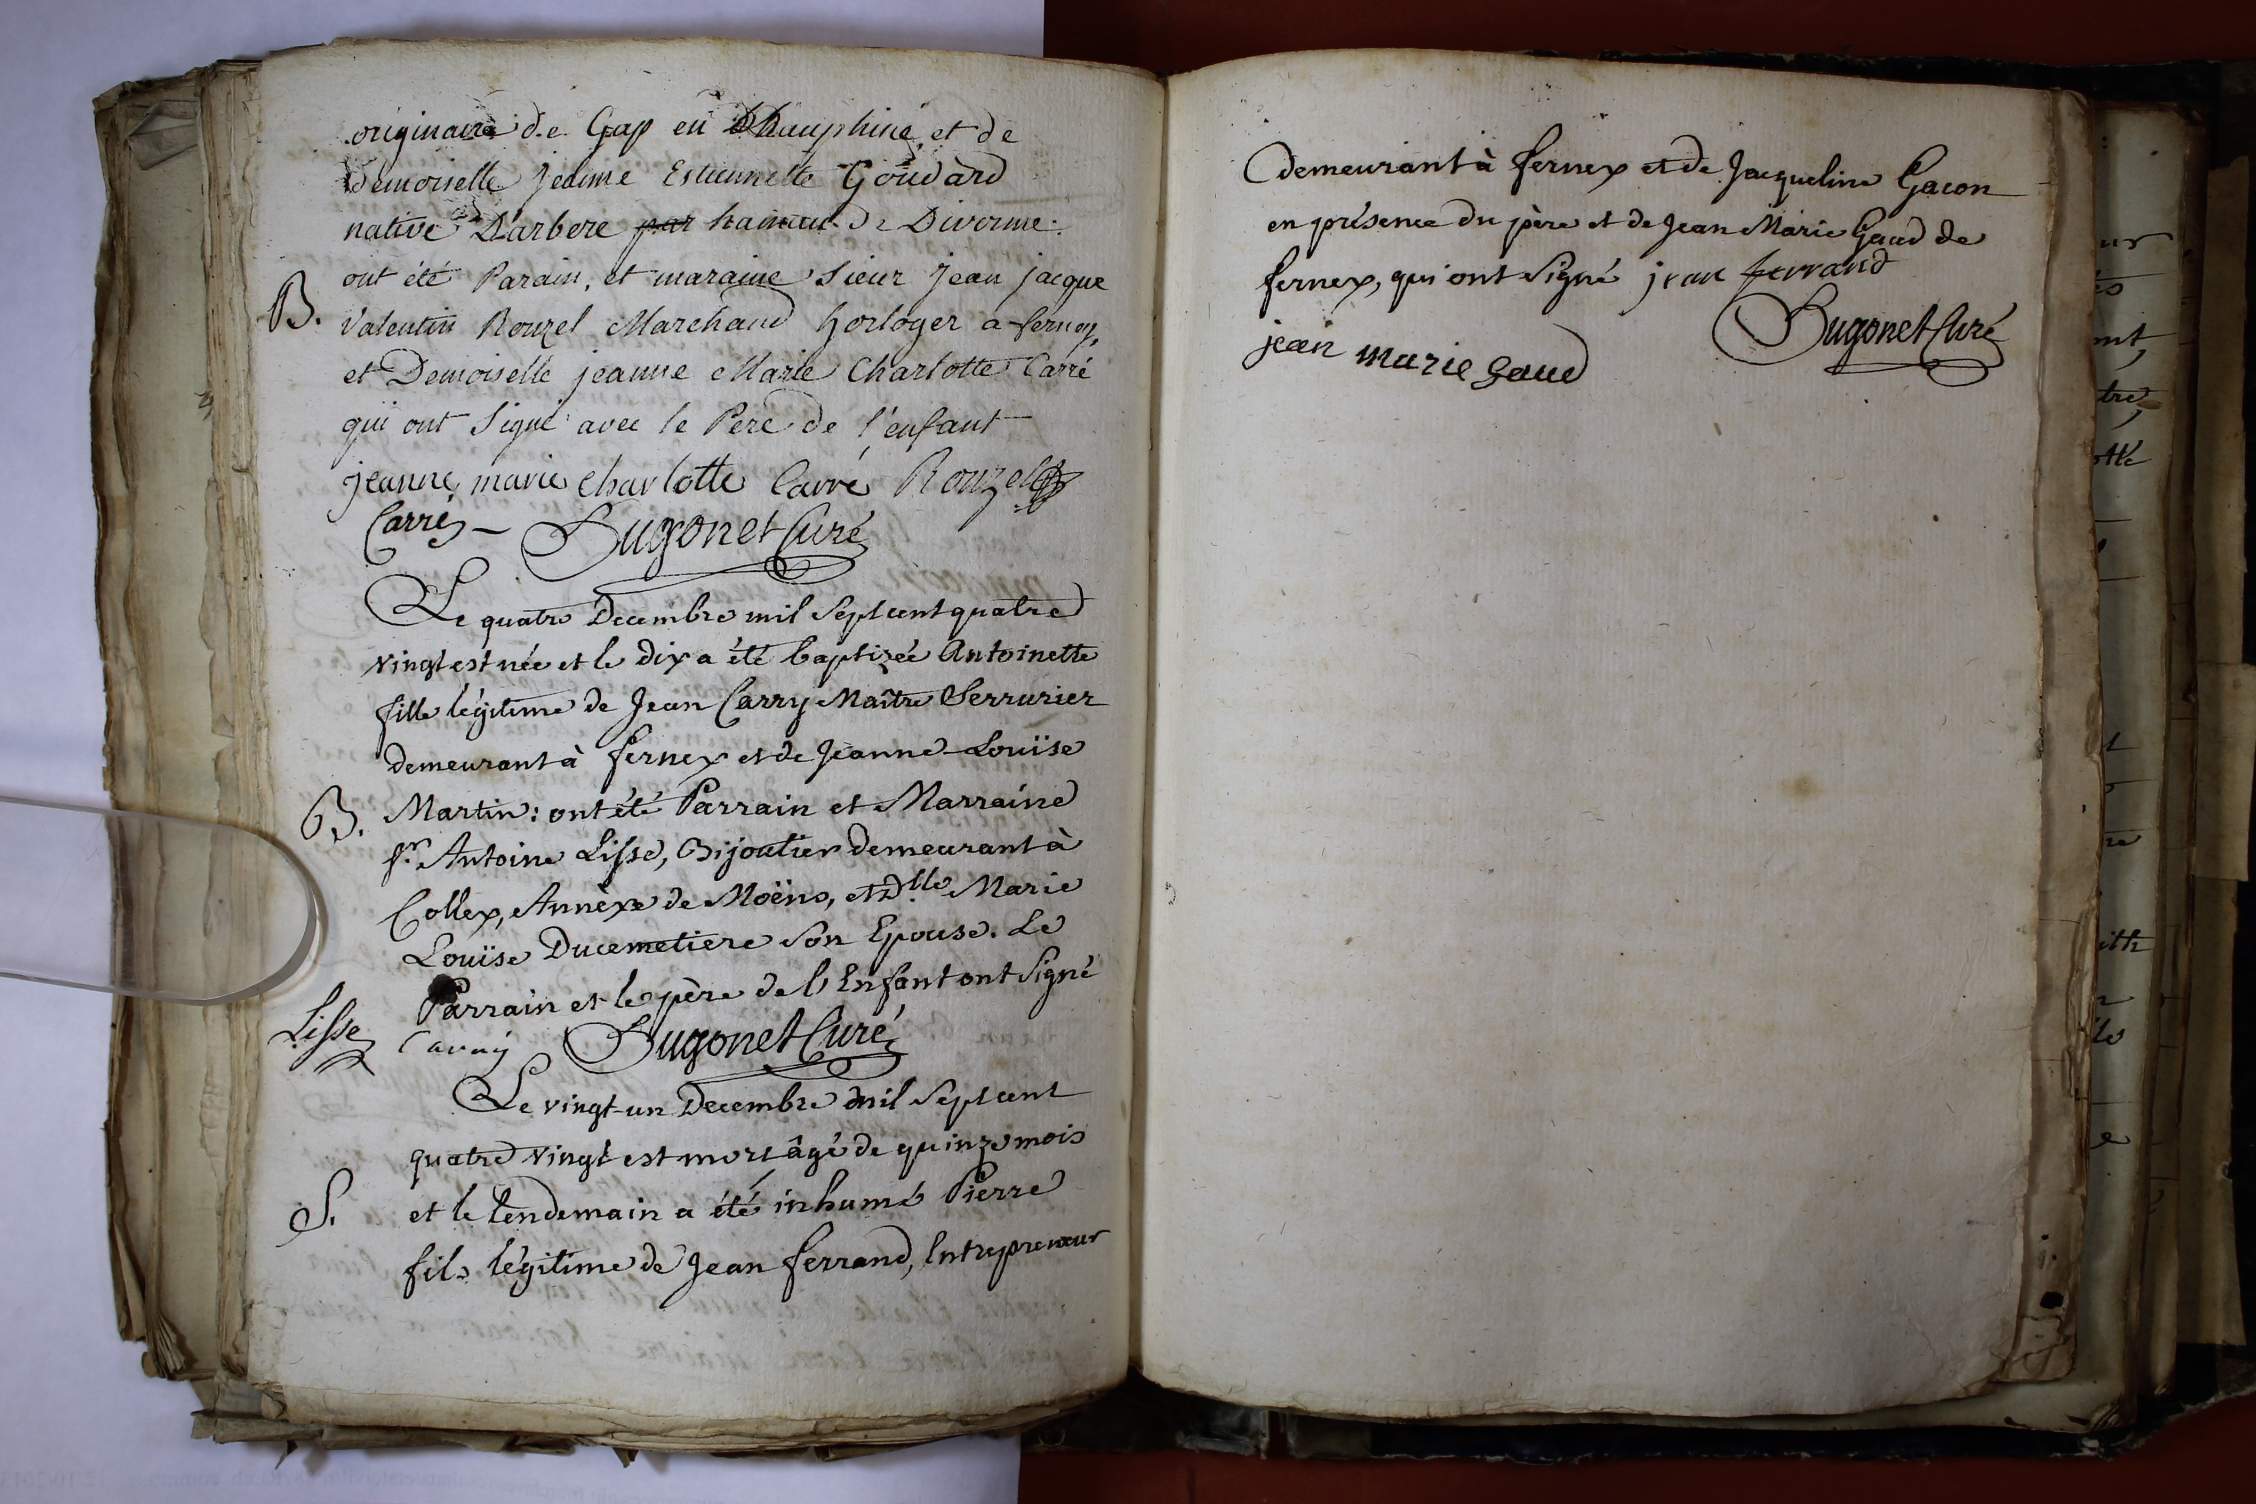 originaire de Gap en Dauphiné, et de
demoiselle jeanne Estiennette Goudard
native Darbere par hameau de Divonne.
B. ont été Parain, et maraine Sieur jean jacque
Valentin Rouzel Marchand horloger a fernex,
et Demoiselle jeanne Marie Charlotte Carré
qui ont Signé avec le Pere de l'enfant
jeanne marie charlotte Carré Rouzel
Carré Hugonet Curé
Le quatre Decembre mil Sept cent quatre
vingt est née et le dix a été baptizée Antoinette
fille légitime de Jean Carry Maître Serrurier
demeurant à fernex et de Jeanne-Louïse
B. Martin: ont été Parrain et Marraine
Sr. Antoine Lisse, Bijoutier demeurant à
Collex, Annèxe de Moëns, et Dlle. Marie
Louïse Ducemetiere Son Epouse. Le
Parrain et le père de l'Enfant ont Signé
Lisse Carry Hugonet Curé
Le vingt-un Decembre mil Sept cent
quatre vingt est mort âgé de quinze mois
S. et le lendemain a été inhumé Pierre
fils légitime de Jean ferrand, Entrepreneur
demeurant à fernex et de Jacqueline Gacon
en présence du père et de Jean Marie Gaud de
fernex, qui ont Signé jean ferrand
jean marie gaud Hugonet Curé